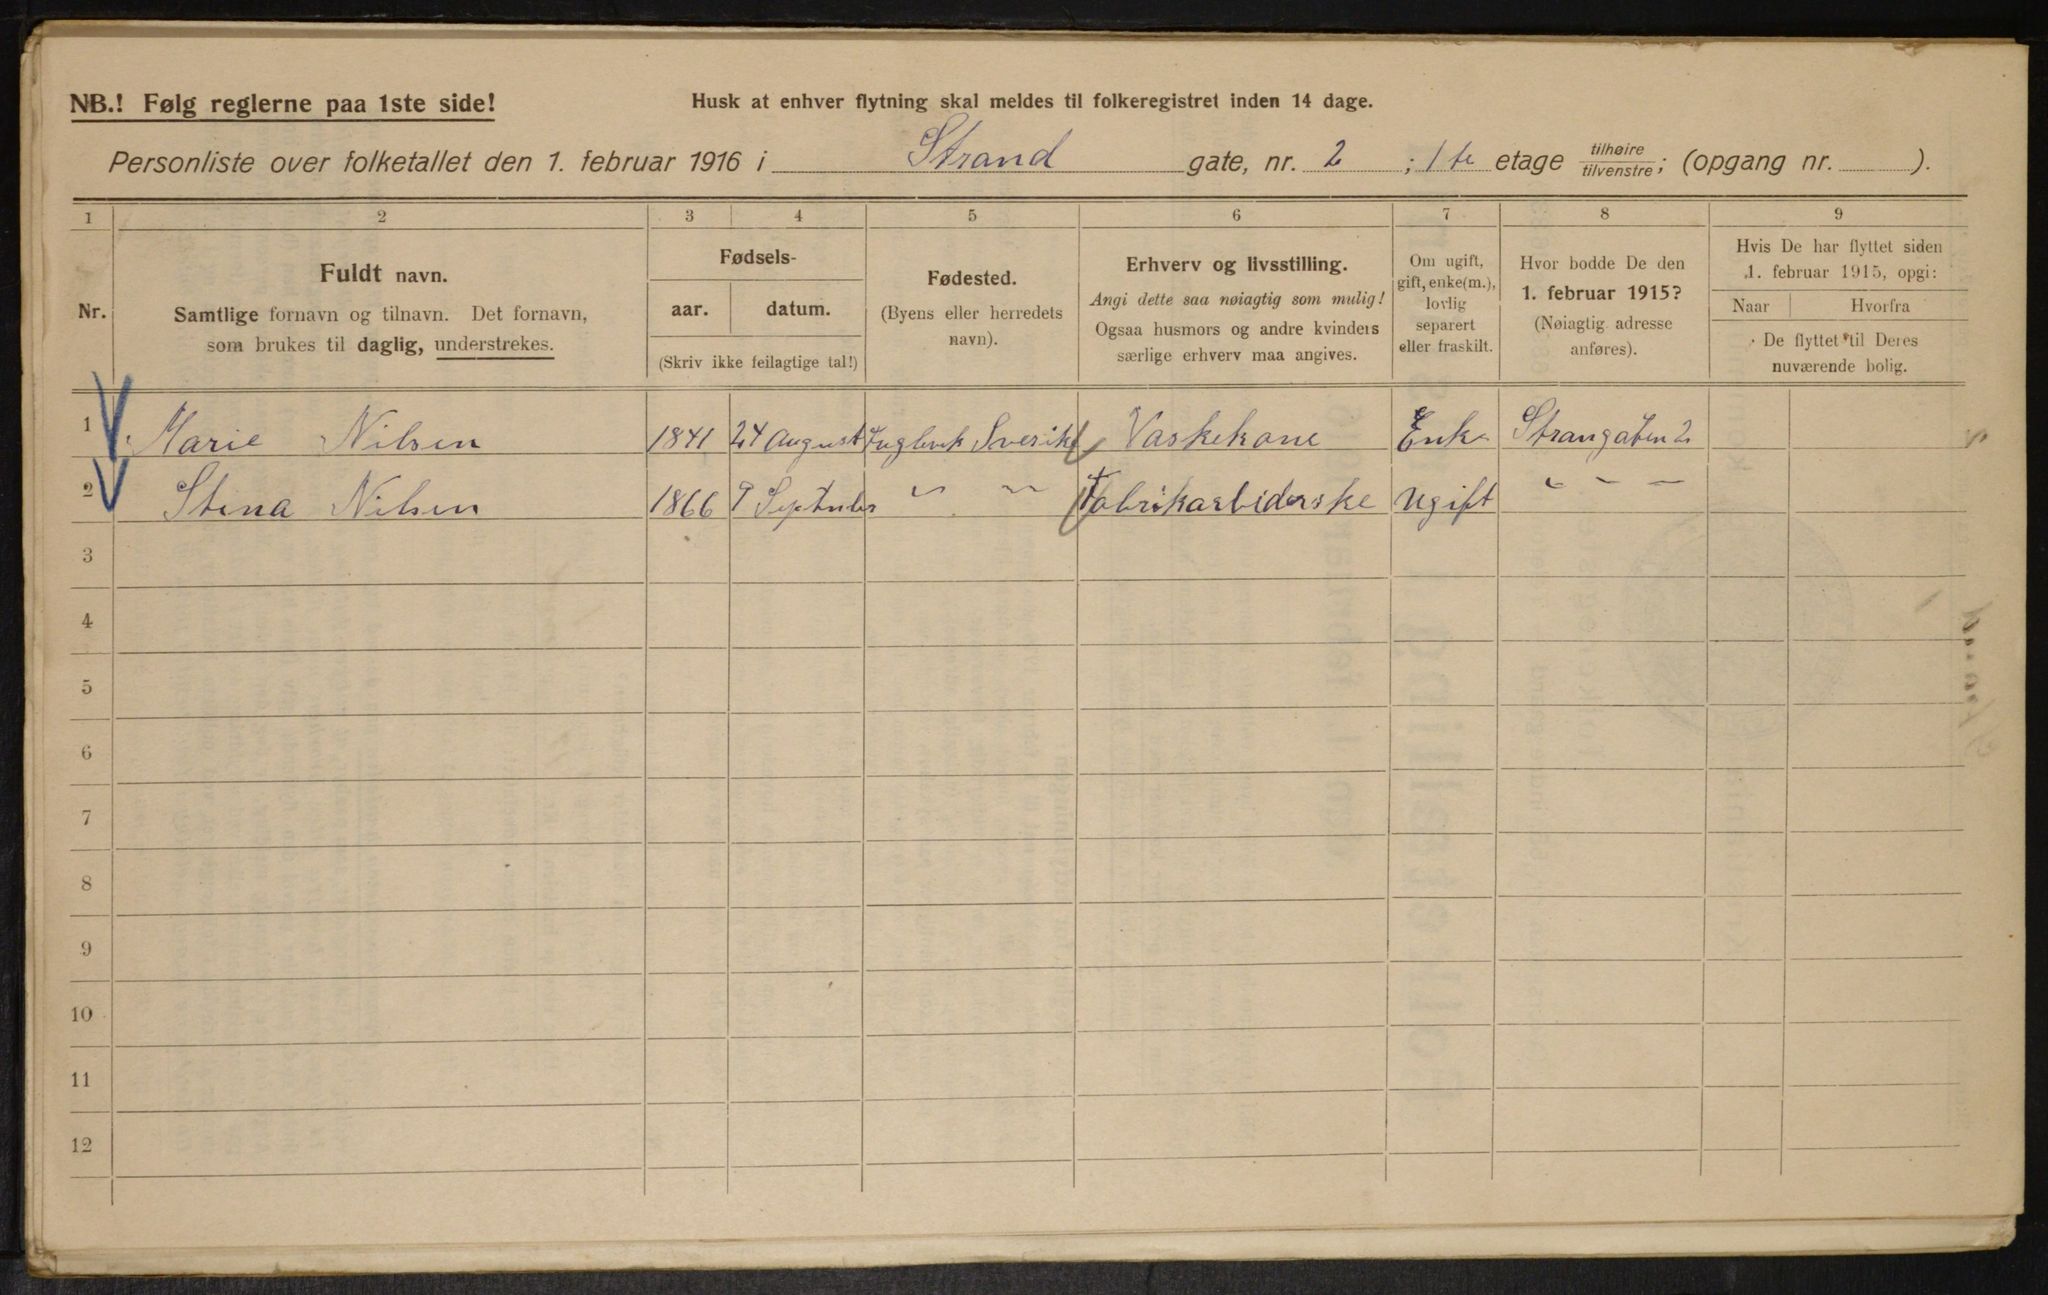 NB.! Følg reglerne paa 1ste side!
Husk at enhver flytning skal meldes til folkeregistret inden 14 dage.
Personliste over folketallet den 1. februar 1916 i Strand gate, nr. 2 ; 1te etage tilhøire tilvenstre; (opgang nr. ).
1 2 3 4 5 6 7 8 9
Nr.
Fuldt navn.
Samtlige fornavn og tilnavn. Det fornavn,
som brukes til daglig, understrekes.
Fødsels-
aar. datum.
(Skriv ikke feilagtige tal!)
Fødested.
(Byens eller herredets
navn).
Erhverv og livsstilling.
Angi dette saa nøiagtig som mulig!
Ogsaa husmors og andre kvinders
særlige erhverv maa angives.
Om ugift,
gift, enke(m.),
lovlig
separert
eller fraskilt.
Hvor bodde De den
1. februar 1915?
(Nøiagtig adresse
anføres).
Hvis De har flyttet siden
1. februar 1915, opgi:
Naar Hvorfra
De flyttet til Deres
nuværende bolig.
1 Marie Nilsen 1841 24 August Sverike Vaskekone Enke Strangaten 2
2 Stina Nilsen 1866 September " " Fabrikarbiderske Ugift " " "
3
4
5
6
7
8
9
10
11
12